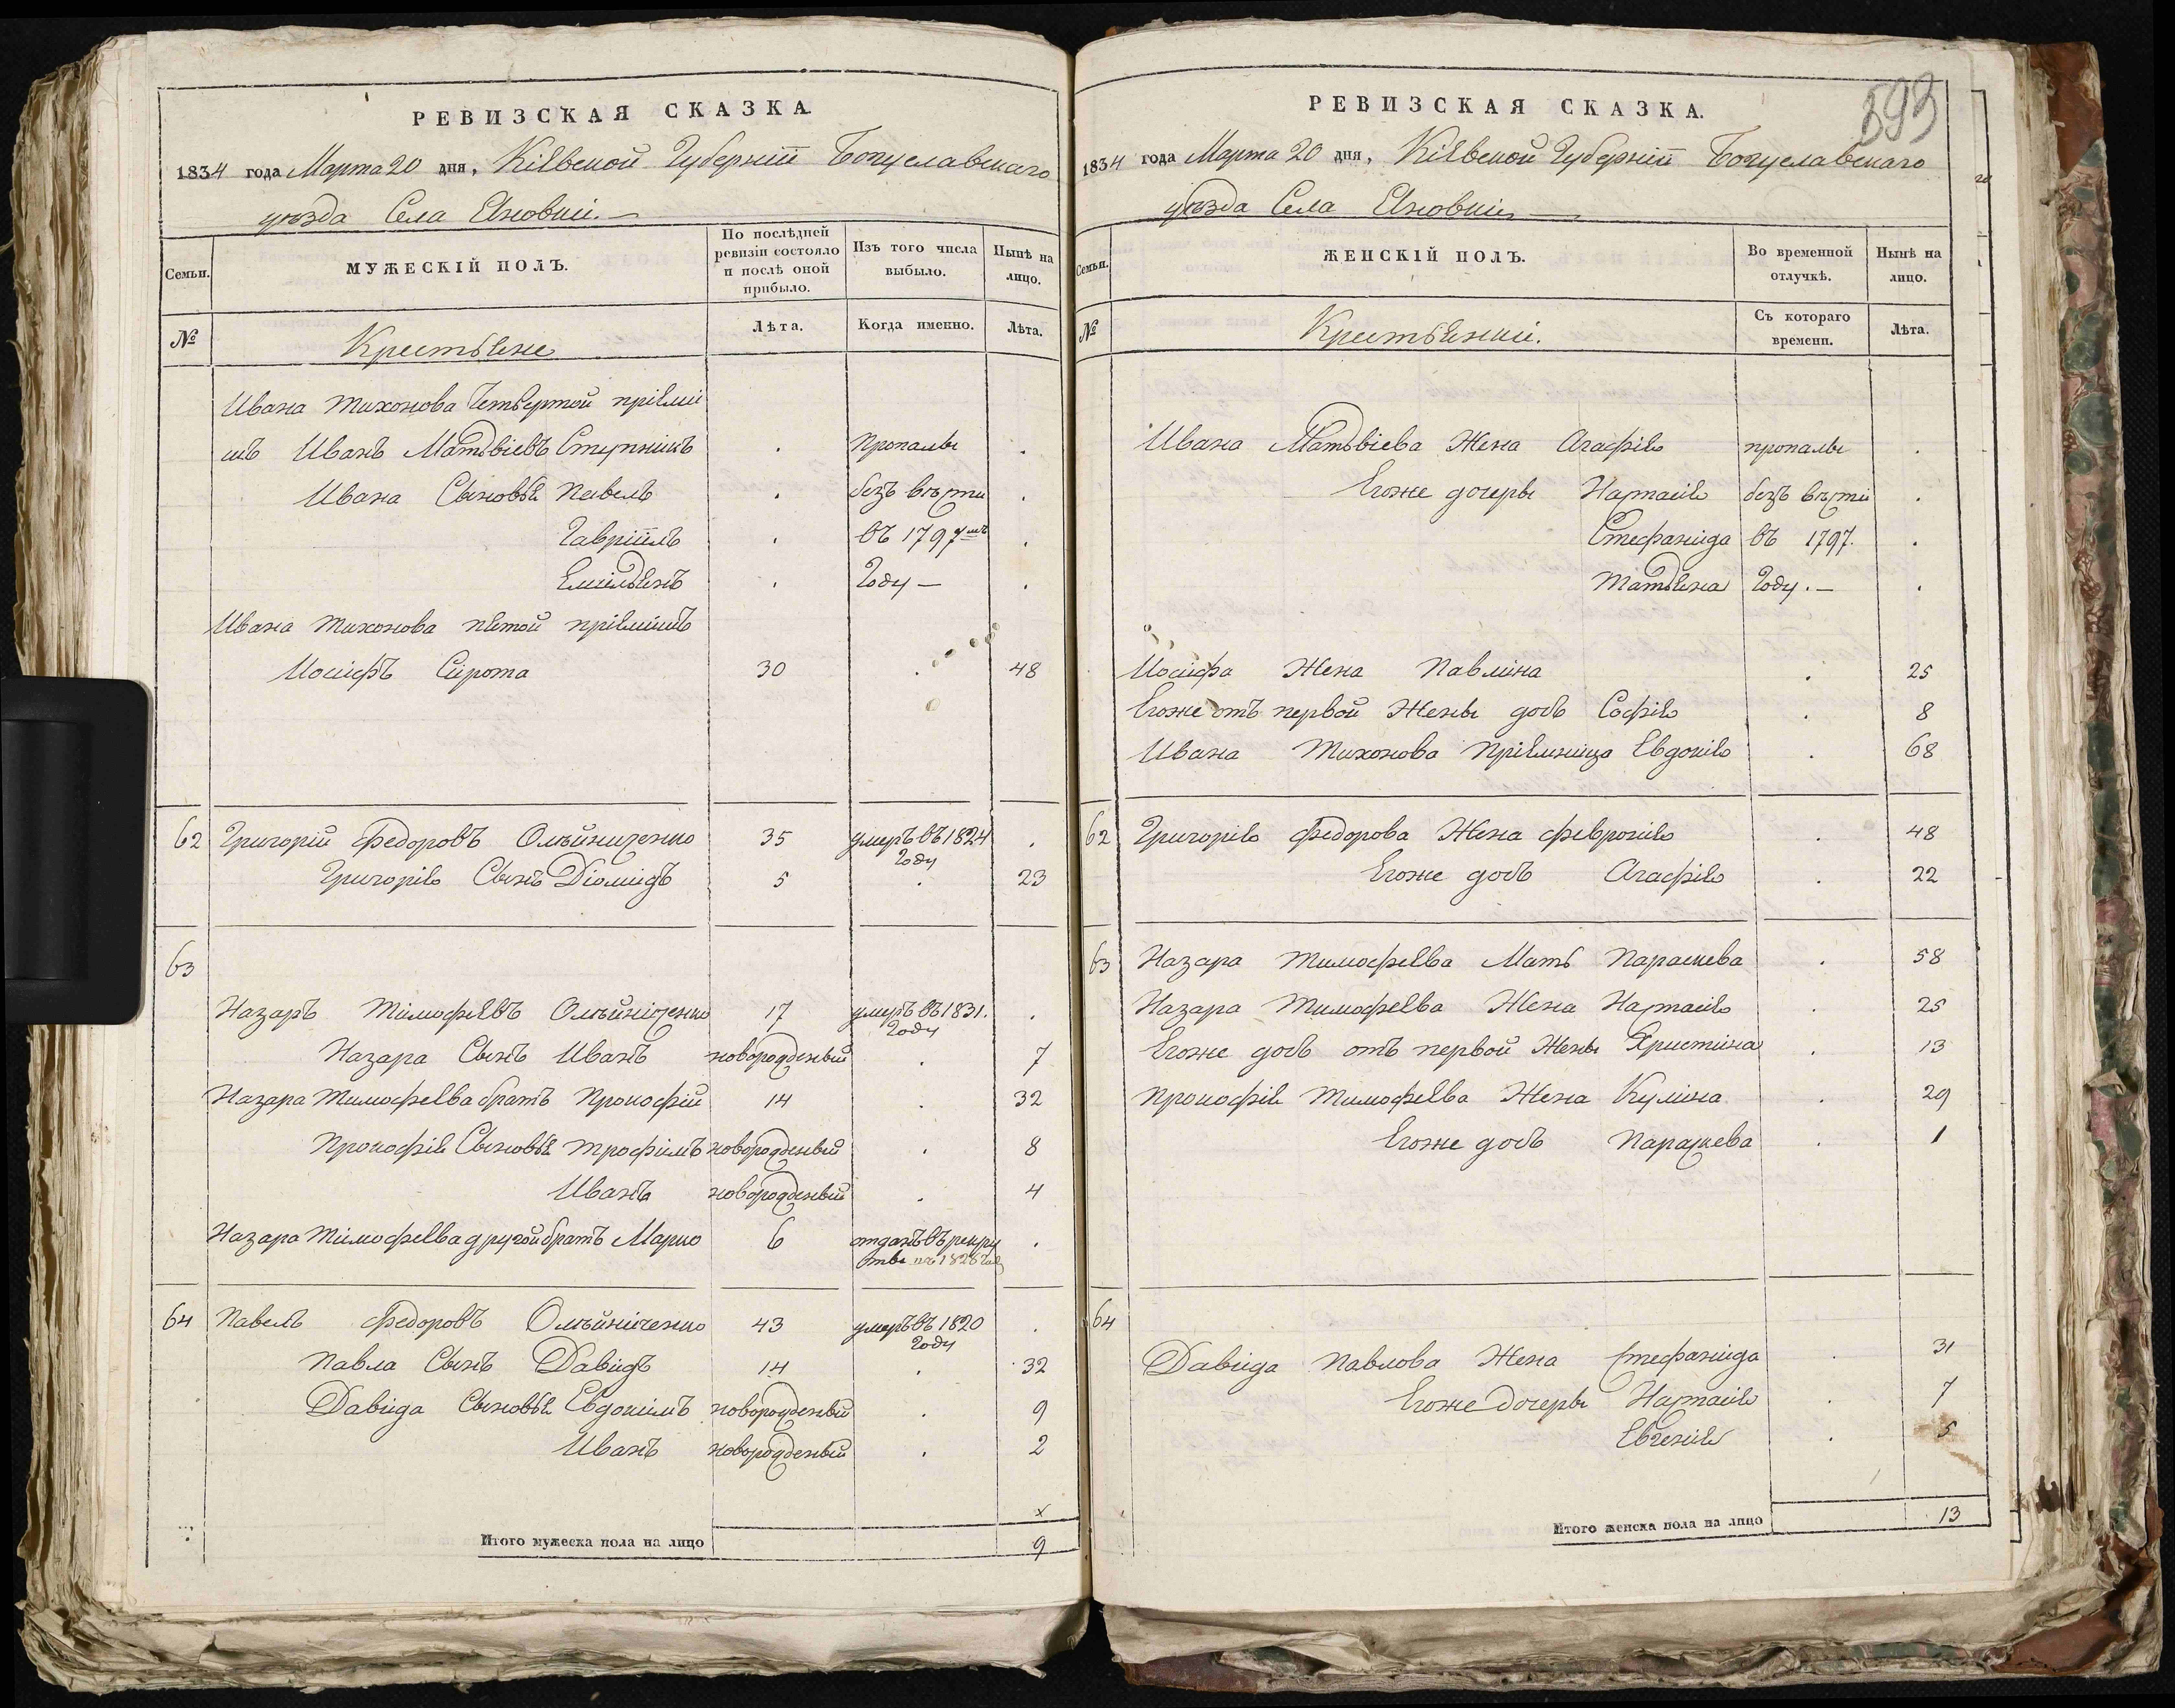 РЕВИЗСКАЯ СКАЗКА.
1834 года Марта 20 дня, Кіевской Губерніи Богуславскаго
уѣзда Села Яновки. —
Семьи.
МУЖЕСКІЙ ПОЛЪ.
По послѣдней ревизіи состояло и послѣ оной прибыло.
Изъ того числа выбыло.
Нынѣ на лицо.
№
Крестьяне
Лѣта.
Когда именно.
Лѣта.
Ивана Тихонова Четвертой пріеми
шъ Иванъ Матвіевъ Ступникъ . Пропалы .
Ивана Сыновья Павелъ . безъ вѣсти .
Гавріилъ . въ 1797мъ .
Емільянъ . Году — .
Ивана Тихонова пятой пріемишъ
Иосифъ Сирота 30 . 48
62 Григорій Федоровъ Олѣйниченко 35 умеръ въ 1824 .
Году
Григорія Сынъ Діомидъ 5 . 23
63
Назаръ Тімофѣевъ Олѣйніченко 17 умеръ въ 1831. .
Году
Назара Сынъ Иванъ новорожденый . 7
Назара Тимофеева братъ Прокофій 14 . 32
Прокофія Сыновья Трофимъ новорожденый . 8
Иванъ новорожденый . 4
Назара Тімофеева другой братъ Марко 6 отданъ въ рекру .
ты въ 1828 Году
64 Павелъ Федоровъ Олѣйніченко 43 умеръ въ 1820 .
Году
Павла Сынъ Давидъ 14 . 32
Давида Сыновья Евдокимъ новорожденый . 9
Иванъ новорожденый . 2
х
Итого мужеска пола на лицо 9
593
РЕВИЗСКАЯ СКАЗКА.
1834 года Марта 20 дня, Кіевской Губерніи Богуславскаго
уѣзда Села Яновки —
Семьи.
ЖЕНСКІЙ ПОЛЪ.
Во временной отлучкѣ.
Нынѣ на лицо.
№
Крестьянки.
Съ котораго времени.
Лѣта.
Ивана Матвіева Жена Агафія пропалы .
Егоже дочеры Настасія безъ вѣсти .
Стефанида въ 1797. .
Татьяна Году. — .
Иосифа Жена Павлина . 25
Егоже отъ первой Жены дочь Софія . 8
Ивана Тихонова Пріемница Евдокія . 68
62 Григорія Федорова Жена Февронія . 48
Егоже дочь Агафія . 22
63 Назара Тимофеева Мать Параскева . 58
Назара Тимофеева Жена Настасія . 25
Егоже дочь отъ первой Жены Христина . 13
Прокофія Тимофеева Жена Кулина . 29
Егоже дочь Параскева . 1
64
Давида Павлова Жена Стефанида . 31
Егоже Дочеры Настасія . 7
Евгенія . 5
Итого женска пола на лицо 13